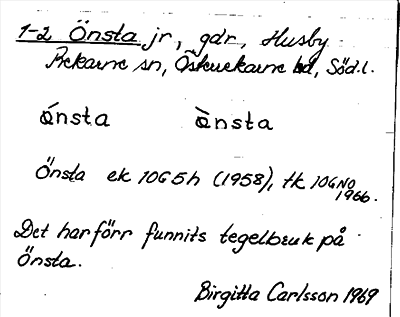 1-2 Önsta jr, gdr, Husby-
Rekarne sn, Österrekarne hd, Söd.l.
ǿnsta ø̀nsta
Önsta ek 10G5h (1958), tk 10GNO
1966.
Det har förr funnits tegelbruk på
Önsta.
Birgitta Carlsson 1969